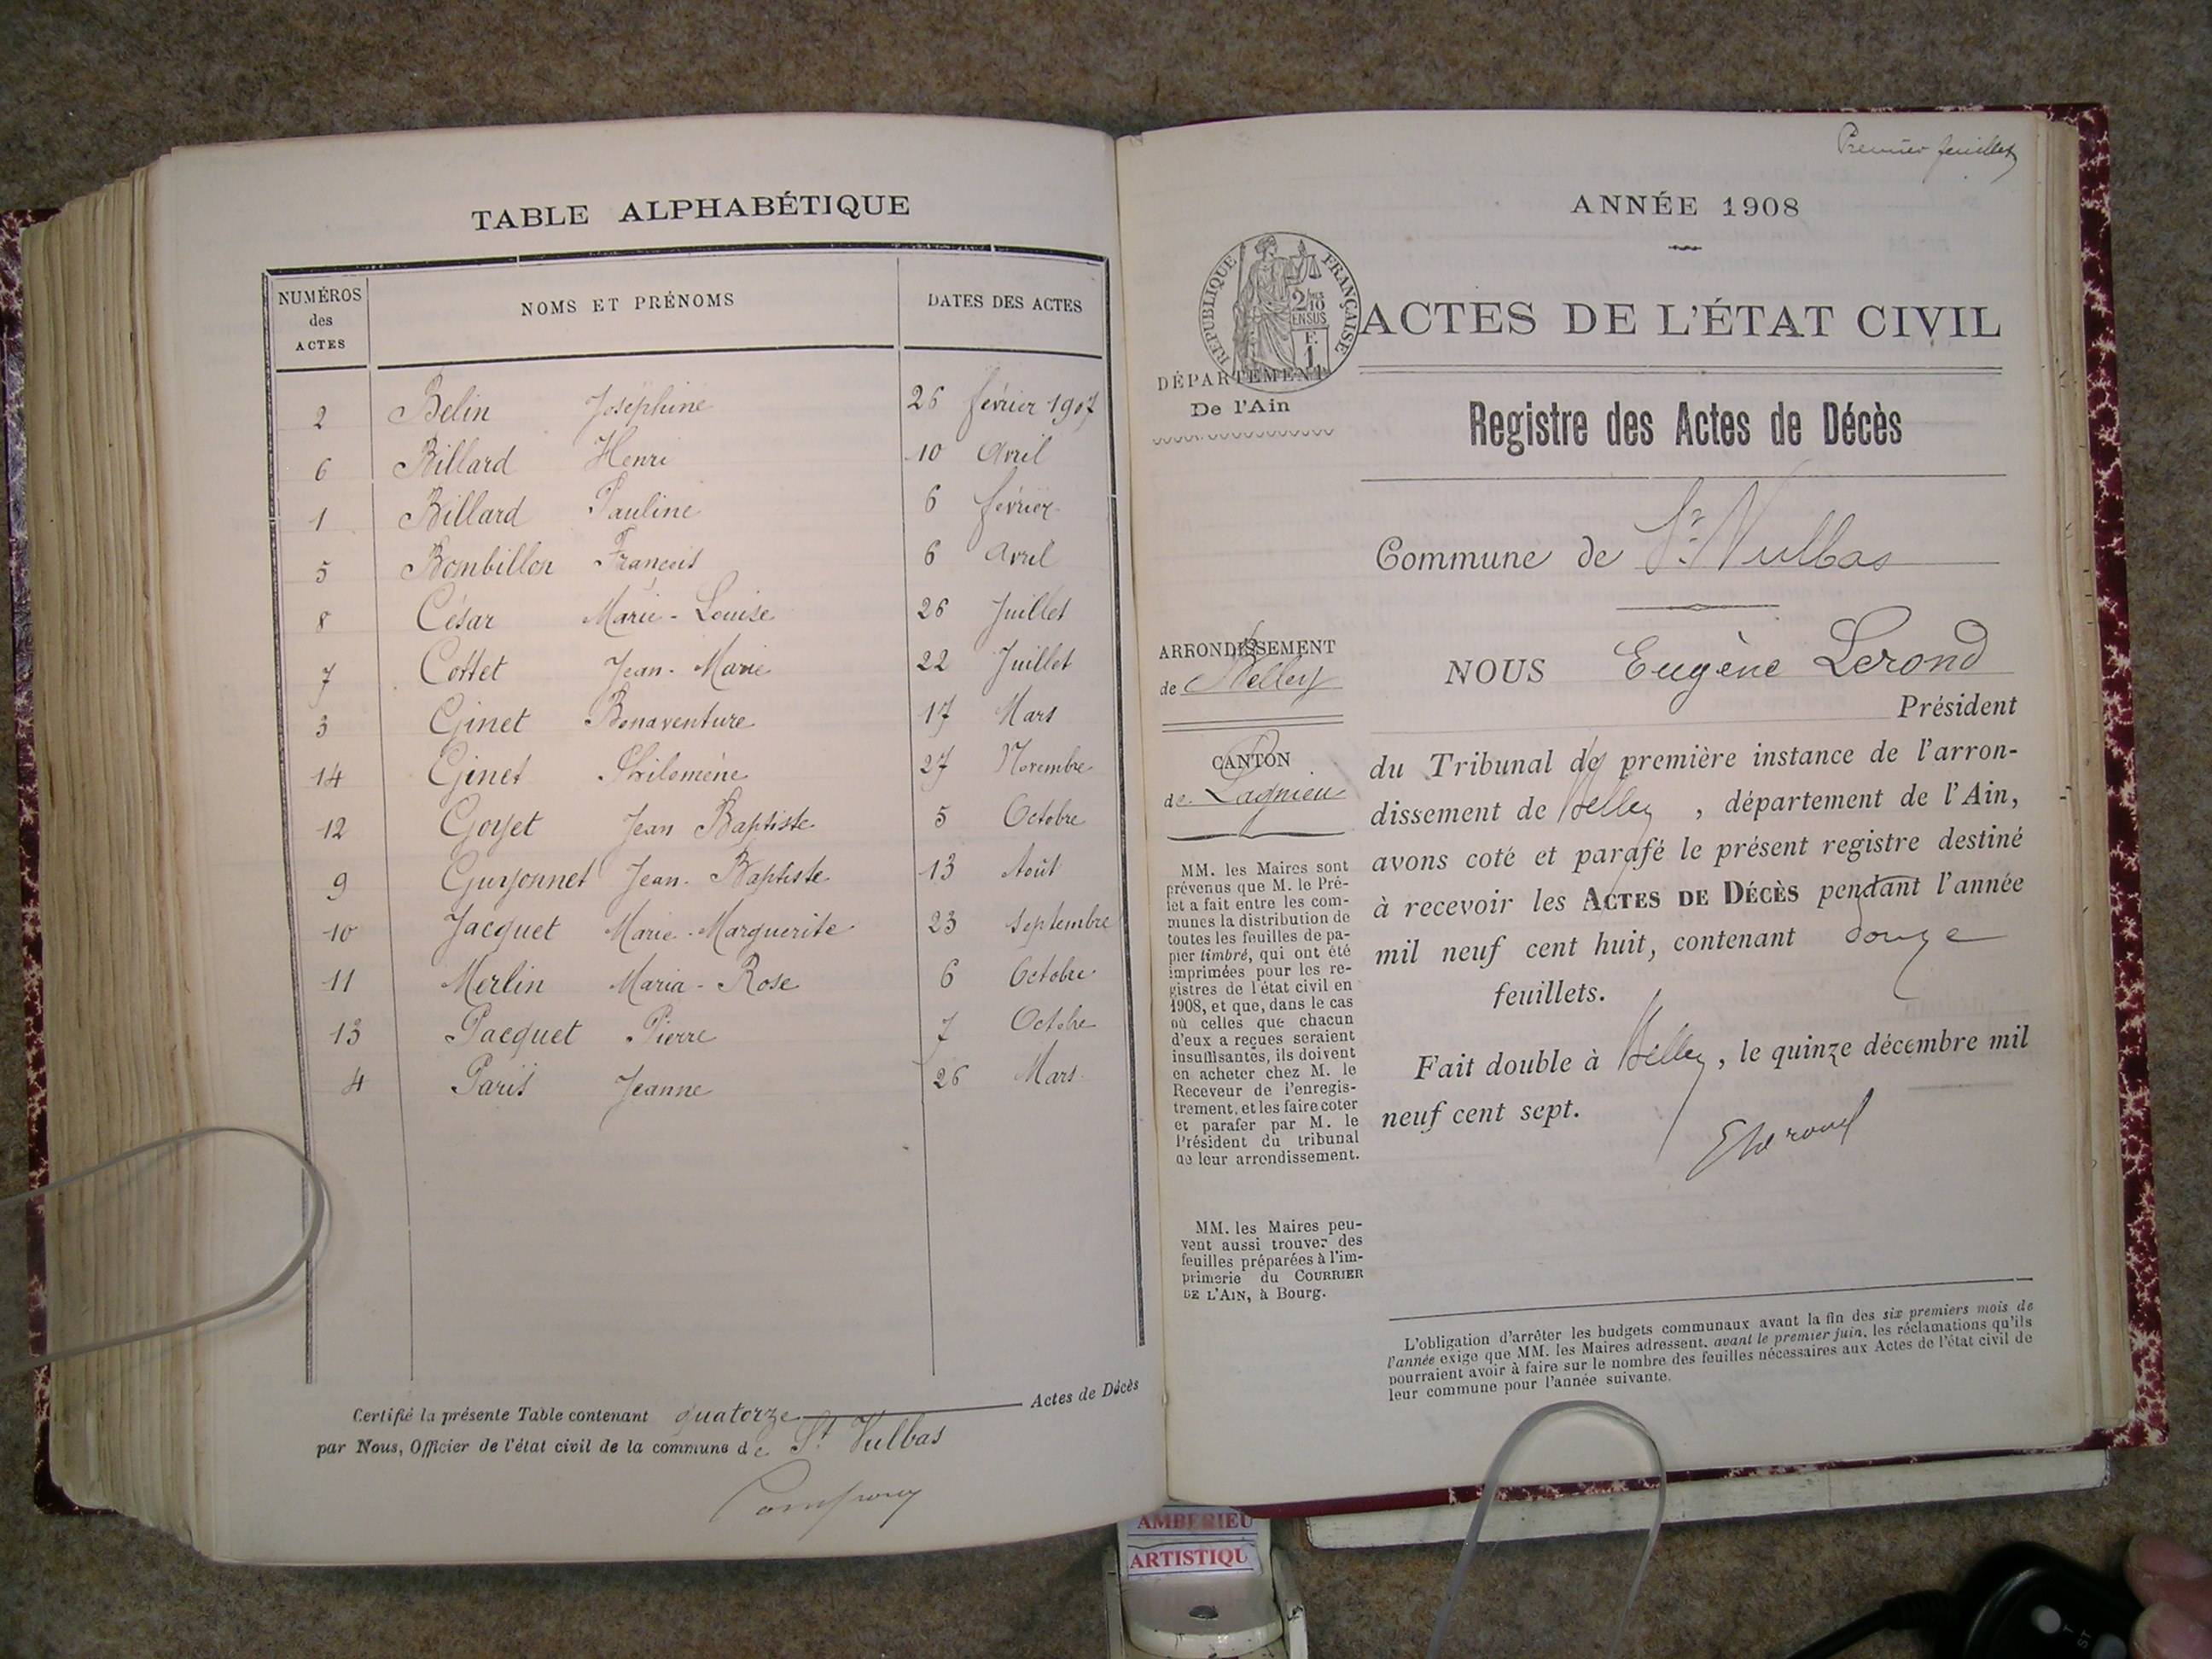 TABLE ALPHABÉTIQUE
NUMÉROS des ACTES NOMS ET PRÉNOMS DATES DES ACTES
2 Belin Joséphine 26 février 1907
6 Billard Henri 10 Avril
1 Billard Pauline 6 février
5 Bombillon François 6 Avril
8 César Marie-Louise 26 Juillet
7 Cottet Jean-Marie 22 Juillet
3 Ginet Bonaventure 17 Mars
14 Ginet Philomène 27 Novembre
12 Goyet Jean Baptiste 5 Octobre
9 Guyonnet Jean-Baptiste 13 Août
10 Jacquet Marie-Marguerite 23 Septembre
11 Merlin Maria-Rose 6 Octobre
13 Pacquet Pierre 7 Octobre
4 Paris Jeanne 26 Mars
Certifié la présente Table contenant quatorze Actes de Décès
par Nous, Officier de l'état civil de la commune de St Vulbas
Premier feuillet
ANNÉE 1908
RÉPUBLIQUE FRANÇAISE
2/10 EN SUS
F. 1
ACTES DE L'ÉTAT CIVIL
DÉPARTEMENT
De l'Ain
Registre des Actes de Décès
Commune de St Vulbas
ARRONDISSEMENT
de Belley
CANTON
de Lagnieu
MM. les Maires sont
prévenus que M. le Pré-
fet a fait entre les com-
munes la distribution de
toutes les feuilles de pa-
pier timbré, qui ont été
imprimées pour les re-
gistres de l'état civil en
1908, et que, dans le cas
où celles que chacun
d'eux a reçues seraient
insuffisantes, ils doivent
en acheter chez M. le
Receveur de l'enregis-
trement, et les faire coter
et parafer par M. le
Président du tribunal
de leur arrondissement.
MM. les Maires peu-
vent aussi trouver des
feuilles préparées à l'im-
primerie du COURRIER
DE L'AIN, à Bourg.
NOUS Eugène Lerond
Président
du Tribunal de première instance de l'arron-
dissement de Belley, département de l'Ain,
avons coté et parafé le présent registre destiné
à recevoir les ACTES DE DÉCÈS pendant l'année
mil neuf cent huit, contenant douze
feuillets.
Fait double à Belley, le quinze décembre mil
neuf cent sept.
L'obligation d'arrêter les budgets communaux avant la fin des six premiers mois de
l'année exige que MM. les Maires adressent, avant le premier juin, les réclamations qu'ils
pourraient avoir à faire sur le nombre des feuilles nécessaires aux Actes de l'état civil de
leur commune pour l'année suivante.
AMBERIEU
ARTISTIQU